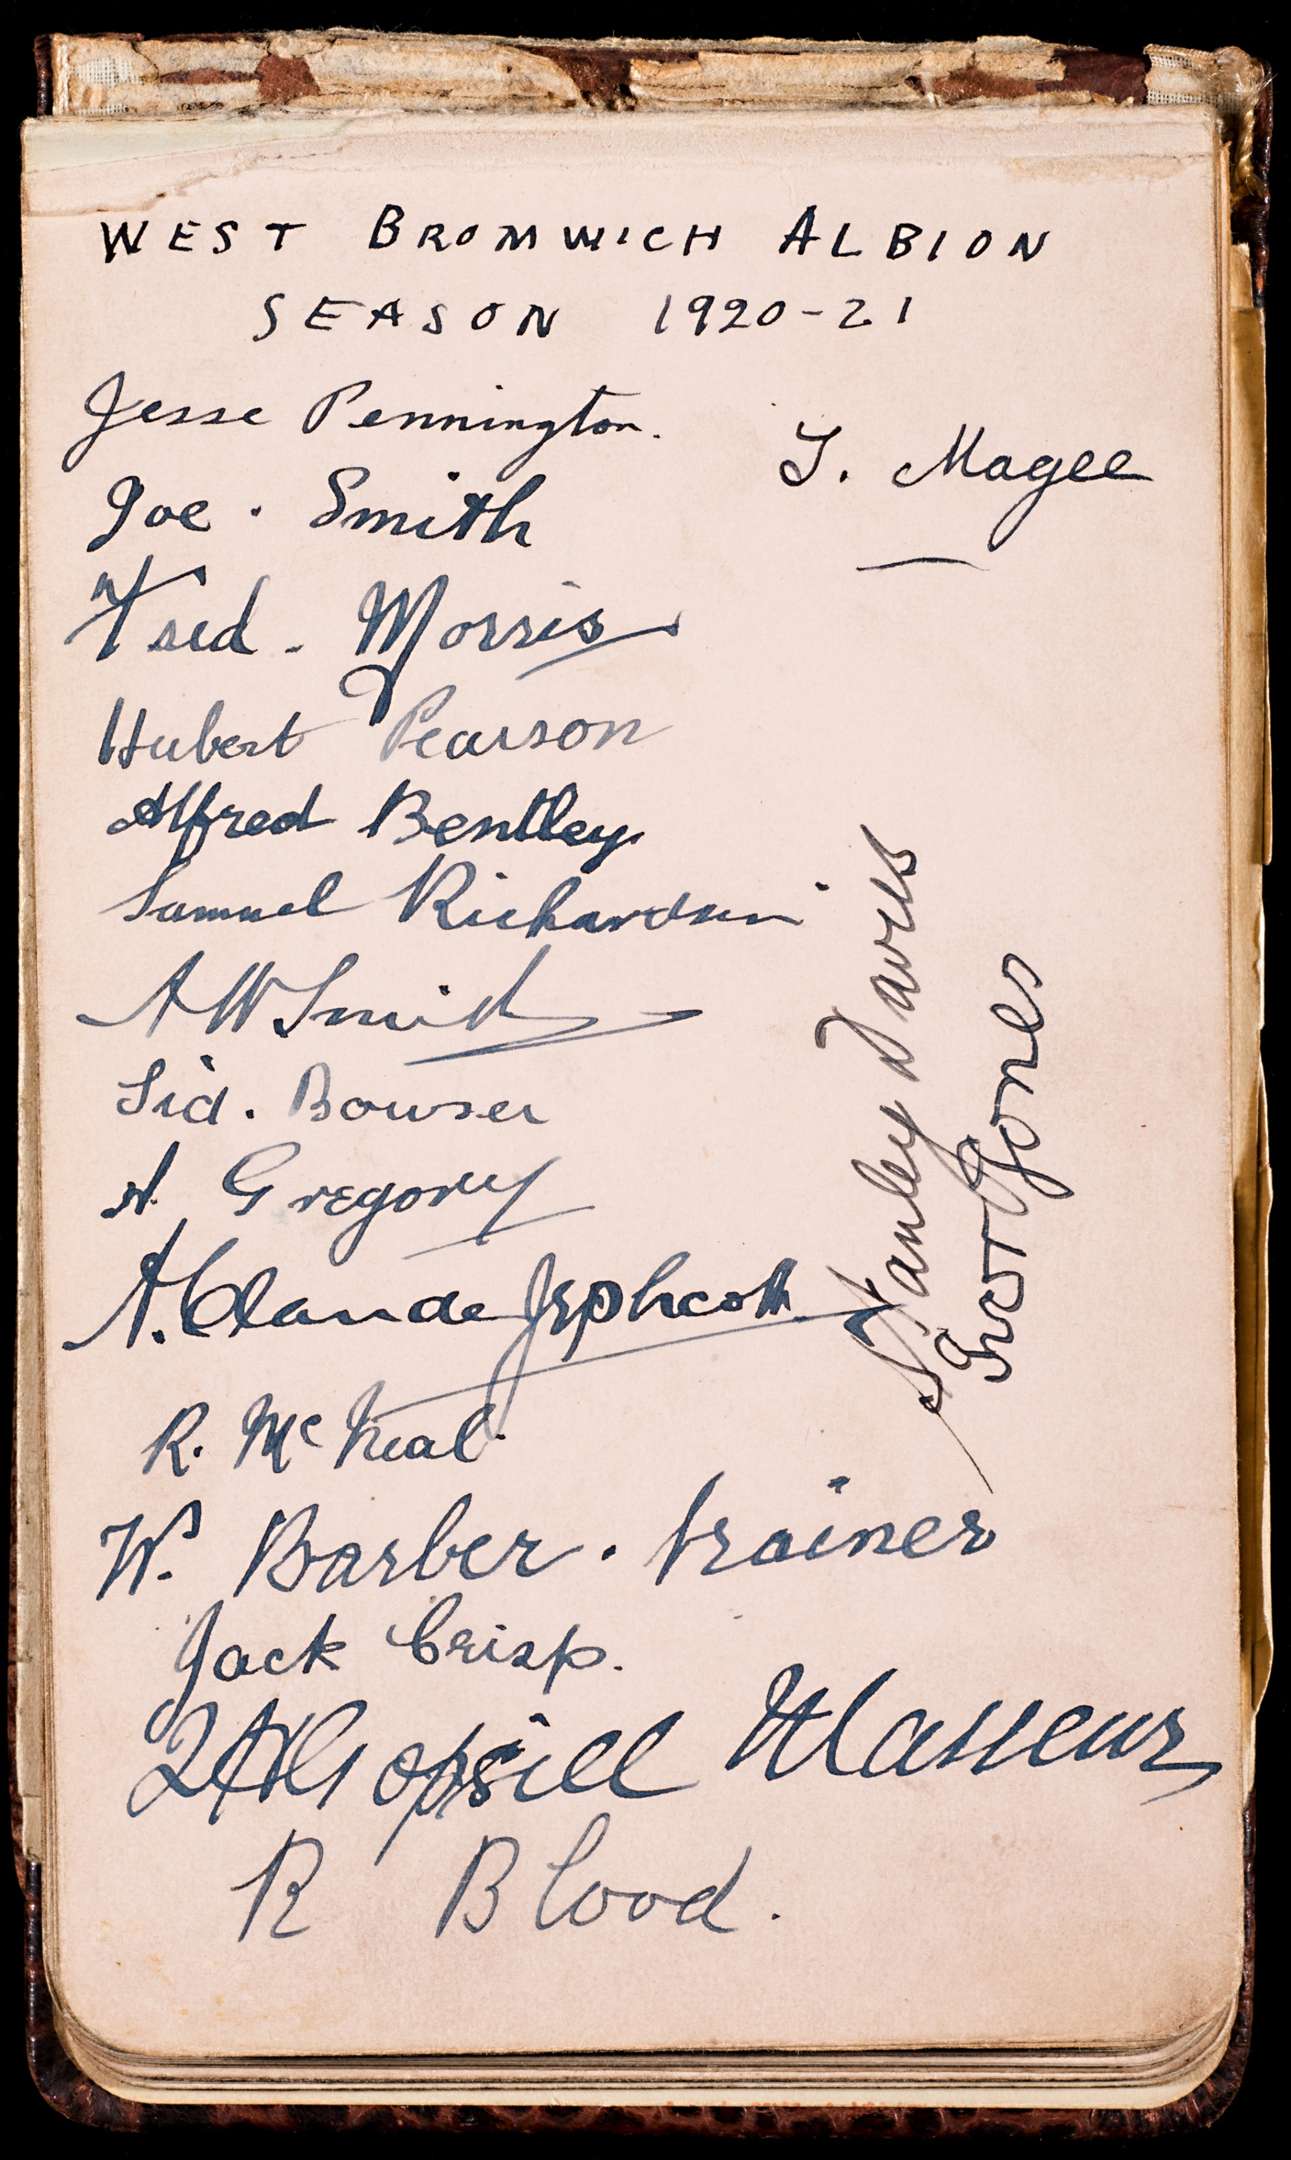 WEST BROMWICH ALBION
SEASON 1920-21
Jesse Pennington.
T. Magee
Joe. Smith
Fred. Morris
Hubert Pearson
Alfred Bentley.
Samuel Richardson
A W Smith
Sid. Bowser
A. Gregory
A. Claude Jephcott.
Stanley Davies
Ivor Jones
R. McNeal.
W. Barber. trainer
Jack Crisp.
Gopsill Masseur
R Blood.